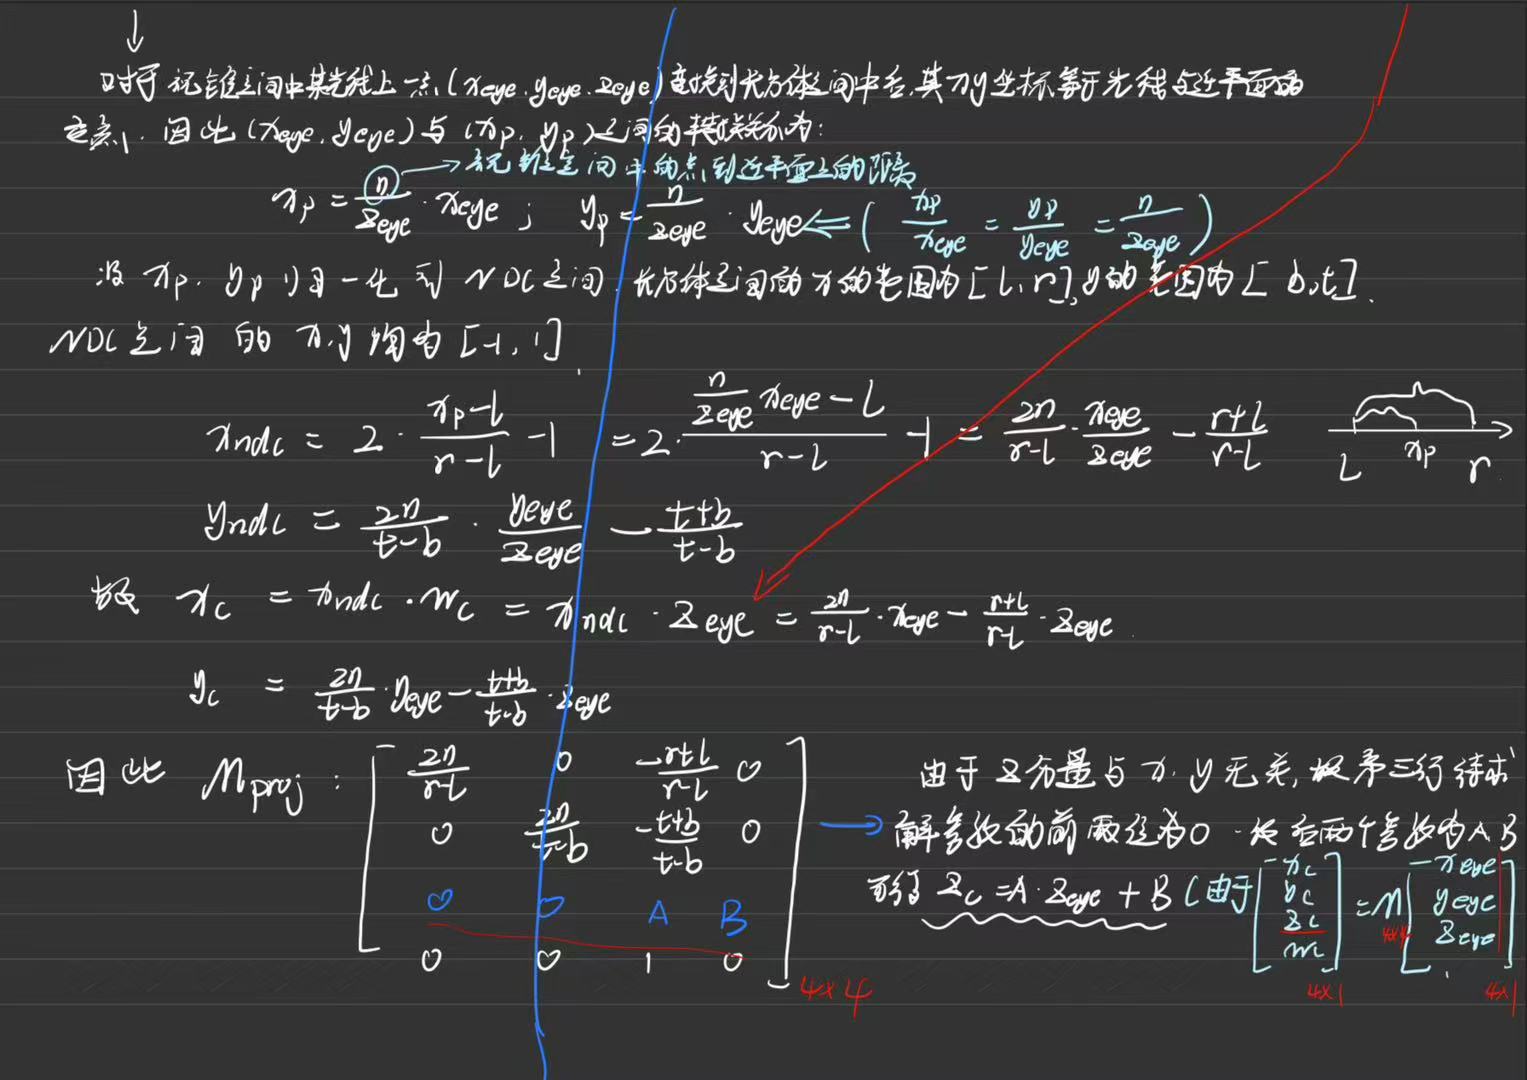 对于视锥空间中某光线上一点(x_eye, y_eye, z_eye)变换到长方体空间中后,其xy坐标等于光线与近平面的
交点,因此(x_eye, y_eye)与(x_p, y_p)之间的转换关系为:
→视锥空间中的点到近平面上的距离
x_p = n/z_eye · x_eye ; y_p = n/z_eye · y_eye ⇐ ( x_p/x_eye = y_p/y_eye = n/z_eye )
将 x_p, y_p 归一化到NDC空间, 长方体空间的x的范围为[l, r], y的范围为[b, t].
NDC空间的x.y均为[-1, 1]
x_ndc = 2 · (x_p - l)/(r - l) - 1 = 2 · (n/z_eye x_eye - l)/(r - l) - 1 = 2n/(r-l) · x_eye/z_eye - (r+l)/(r-l)
l x_p r
y_ndc = 2n/(t-b) · y_eye/z_eye - (t+b)/(t-b)
故 x_c = x_ndc · w_c = x_ndc · z_eye = 2n/(r-l) · x_eye - (r+l)/(r-l) · z_eye
y_c = 2n/(t-b) · y_eye - (t+b)/(t-b) · z_eye
因此 M_proj :
[ 2n/(r-l) 0 -(r+l)/(r-l) 0
0 2n/(t-b) -(t+b)/(t-b) 0
0 0 A B
0 0 1 0 ] 4×4
→ 由于z分量与x.y无关, 故第三行待求
解参数的前两位为0. 设后两个参数为A, B
可得 z_c = A · z_eye + B (由于 [ x_c y_c z_c w_c ] 4×1 = M 4×4 [ x_eye y_eye z_eye 1 ] 4×1